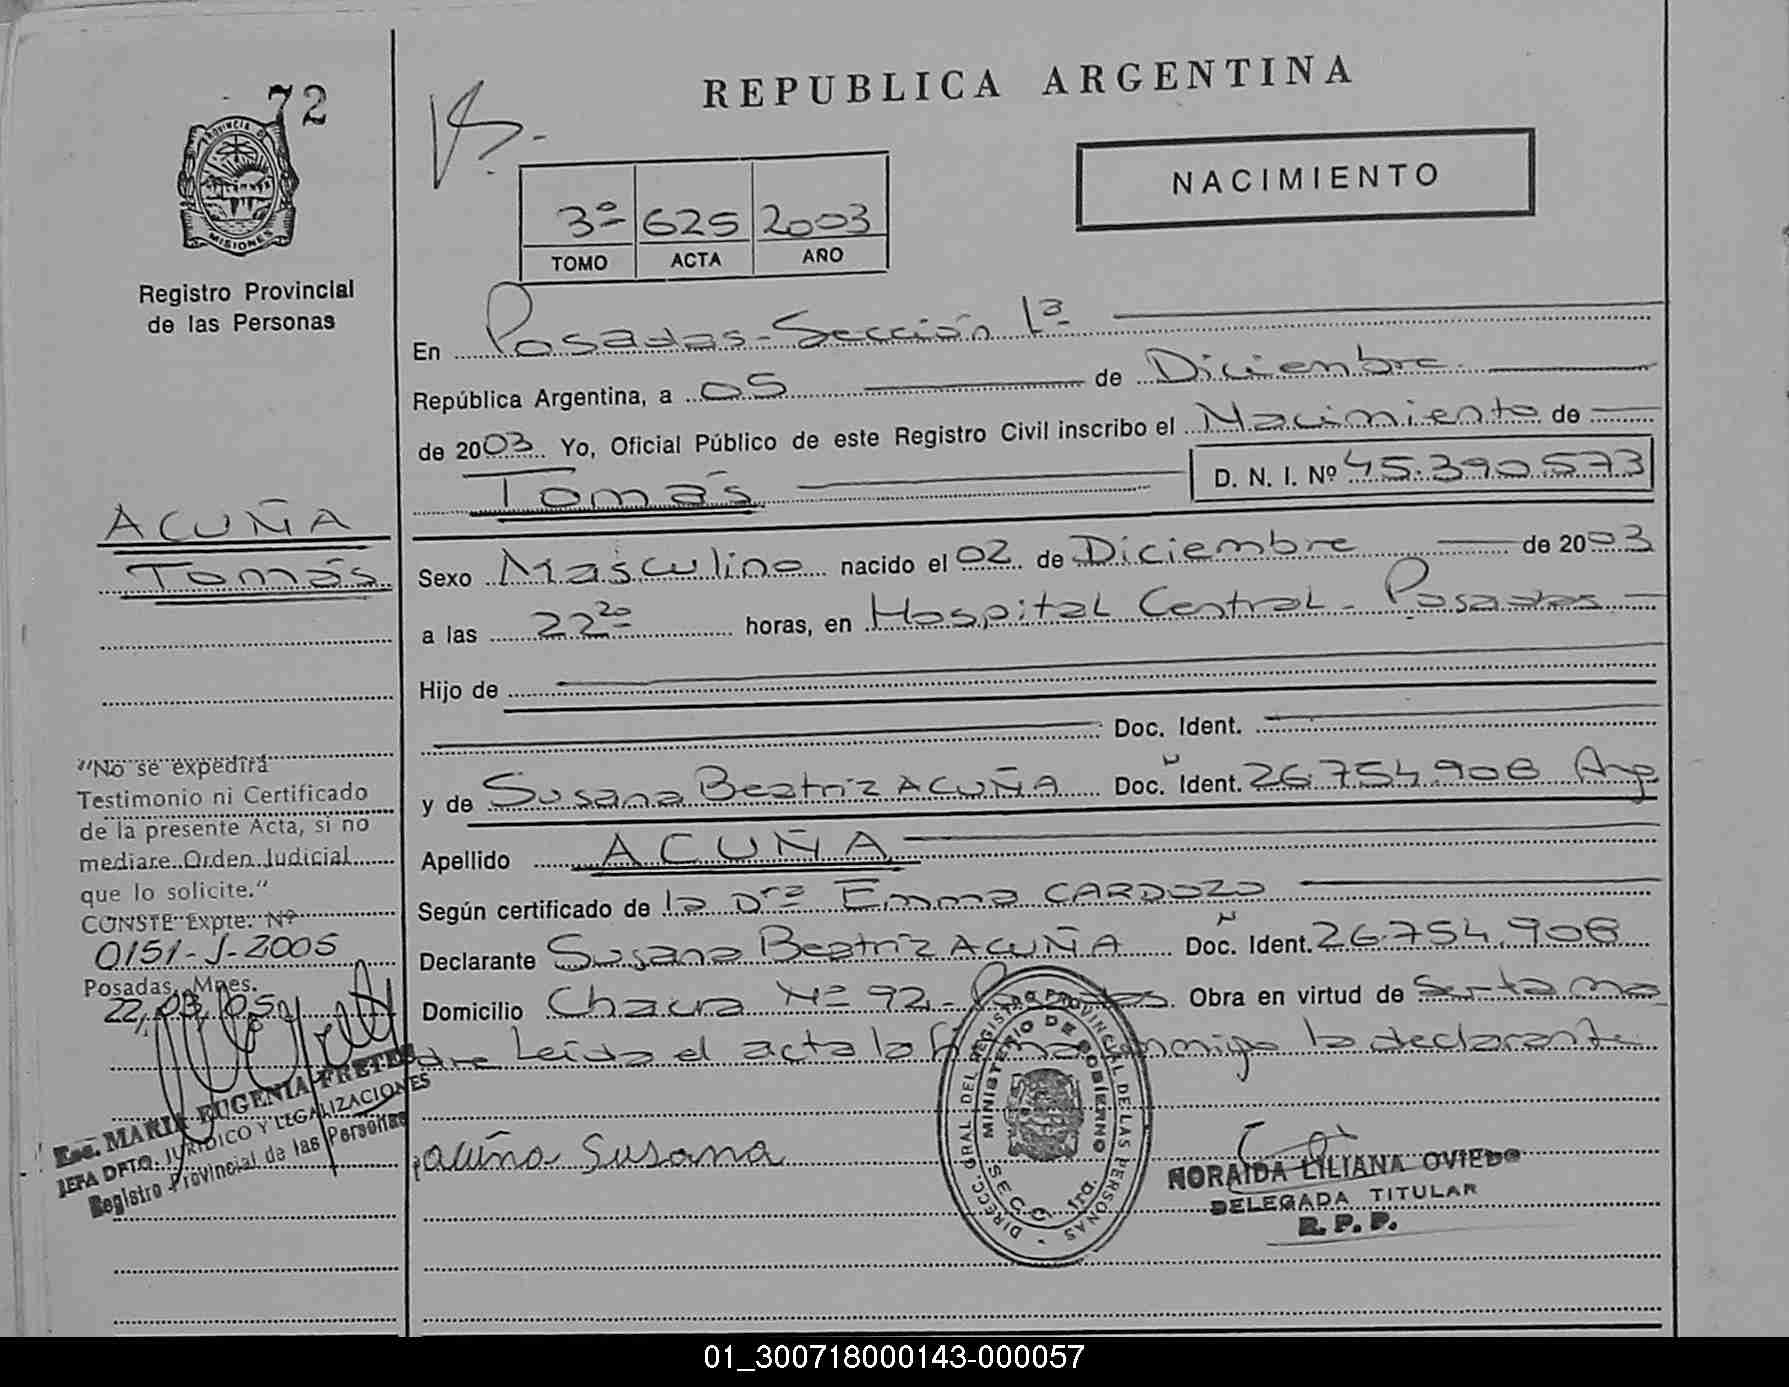 72
PROVINCIA DE
MISIONES
Registro Provincial
de las Personas
REPUBLICA ARGENTINA
NACIMIENTO
3º 625 2003
TOMO ACTA AÑO
En Posadas - Sección 1ª
República Argentina, a 05 de Diciembre
de 2003 Yo, Oficial Público de este Registro Civil inscribo el Nacimiento de
Tomás D. N. I. Nº 45.390.573
ACUÑA
Tomás
Sexo Masculino nacido el 02 de Diciembre de 2003
a las 22²⁰ horas, en Hospital Central - Posadas
Hijo de
Doc. Ident.
y de Susana Beatriz ACUÑA Doc. Ident. 26.754.908 Arg
Apellido ACUÑA
Según certificado de la Dra Emma CARDOZO
Declarante Susana Beatriz ACUÑA Doc. Ident. 26.754.908
Domicilio Chacra Nº 92 - Posadas. Obra en virtud de ser la ma
dre Leida el acta la firma conmigo la declarante
"No se expedirá
Testimonio ni Certificado
de la presente Acta, si no
mediare Orden Judicial
que lo solicite."
CONSTE Expte. Nº
0151-J-2005
Posadas, Mnes.
22,03,05
Esc. MARIA EUGENIA FRETES
JEFA DPTO. JURIDICO Y LEGALIZACIONES
Registro Provincial de las Personas
acuña Susana
DIRECC. GRAL DEL REGISTRO PROVINCIAL DE LAS PERSONAS
MINISTERIO DE GOBIERNO
SECC. 1ra.
NORAIDA LILIANA OVIEDO
DELEGADA TITULAR
R. P. P.
01_300718000143-000057